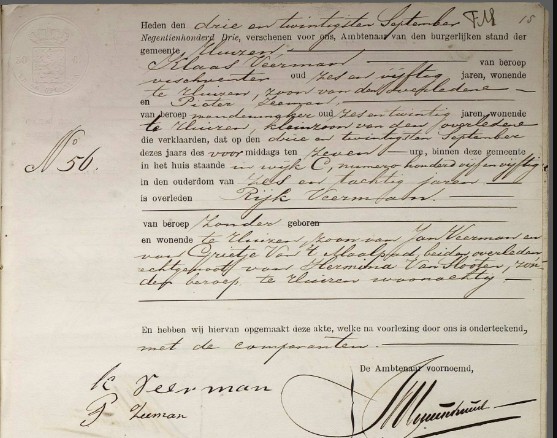 Heden den drie en twintigsten September
15
Negentienhonderd Drie, verschenen voor ons, Ambtenaar van den burgerlijken stand der
gemeente Huizen:
Klaas Veerman van beroep
vischventer oud zes en vijftig jaren, wonende
te Huizen, zoon van den overledene
en Pieter Zeeman,
van beroep mandenmaker oud zes en twintig jaren, wonende
te Huizen, kleinzoon van den overledene
die verklaarden, dat op den drie en twintigsten September
dezes jaars des voor middags ten zeven ure, binnen deze gemeente
in het huis staande in wijk C, numero honderd vijf en vijftig
No 56.
in den ouderdom van zes en tachtig jaren
is overleden Rijk Veerman.
van beroep zonder geboren
en wonende te Huizen, zoon van Jan Veerman en
van Grietje Van 't Maalpad, beiden overleden
echtgenoot van Hermina Van Slooten, zon-
der beroep te Huizen woonachtig
En hebben wij hiervan opgemaakt deze akte, welke na voorlezing door ons is onderteekend,
met de comparanten.
De Ambtenaar voornoemd,
K Veerman
P Zeeman